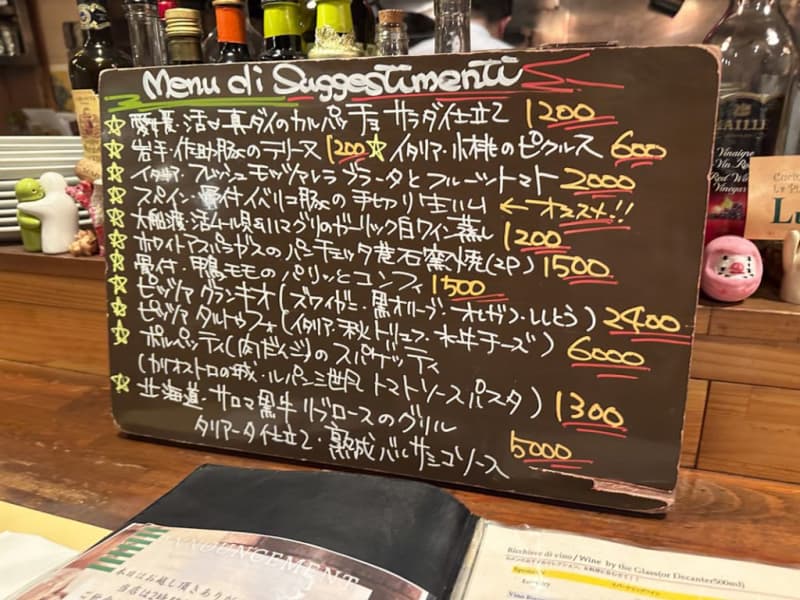 Menu di Suggestimenti
☆ 愛媛・活〆真ダイのカルパッチョ サラダ仕立て 1200
☆ 岩手・作助豚のテリーヌ 1200 ☆ イタリア・小桃のピクルス 600
☆ イタリア・フレッシュモッツァレラ ブラータとフルーツトマト 2000
☆ スペイン・骨付イベリコ豚の手切り生ハム ← オススメ!!
☆ 大船渡・活ムール貝&ハマグリのガーリック白ワイン蒸し 1200
☆ ホワイトアスパラガスのパンチェッタ巻石窯焼(2P) 1500
☆ 骨付・鴨モモのパリッとコンフィ 1500
☆ ピッツァ グランキオ(ズワイガニ・黒オリーブ・オレガノ・ししとう) 2400
☆ ピッツァ タルトゥフォ(イタリア・秋トリュフ・水牛チーズ) 6000
☆ ポルペッティ(肉だんご)のスパゲッティ
(カリオストロの城・ルパン三世風 トマトソースパスタ) 1300
☆ 北海道・サロマ黒牛リブロースのグリル
タリアータ仕立て・熟成バルサミコソース 5000
MAILLE
Vinaigre
Vin Rouge
Red Wine
Vinegar
ANNOUNCEMENT
本日はお越し頂きあり
当店は2時
Bicchiere di vino / Wine by the Glass(or Decanter500ml)